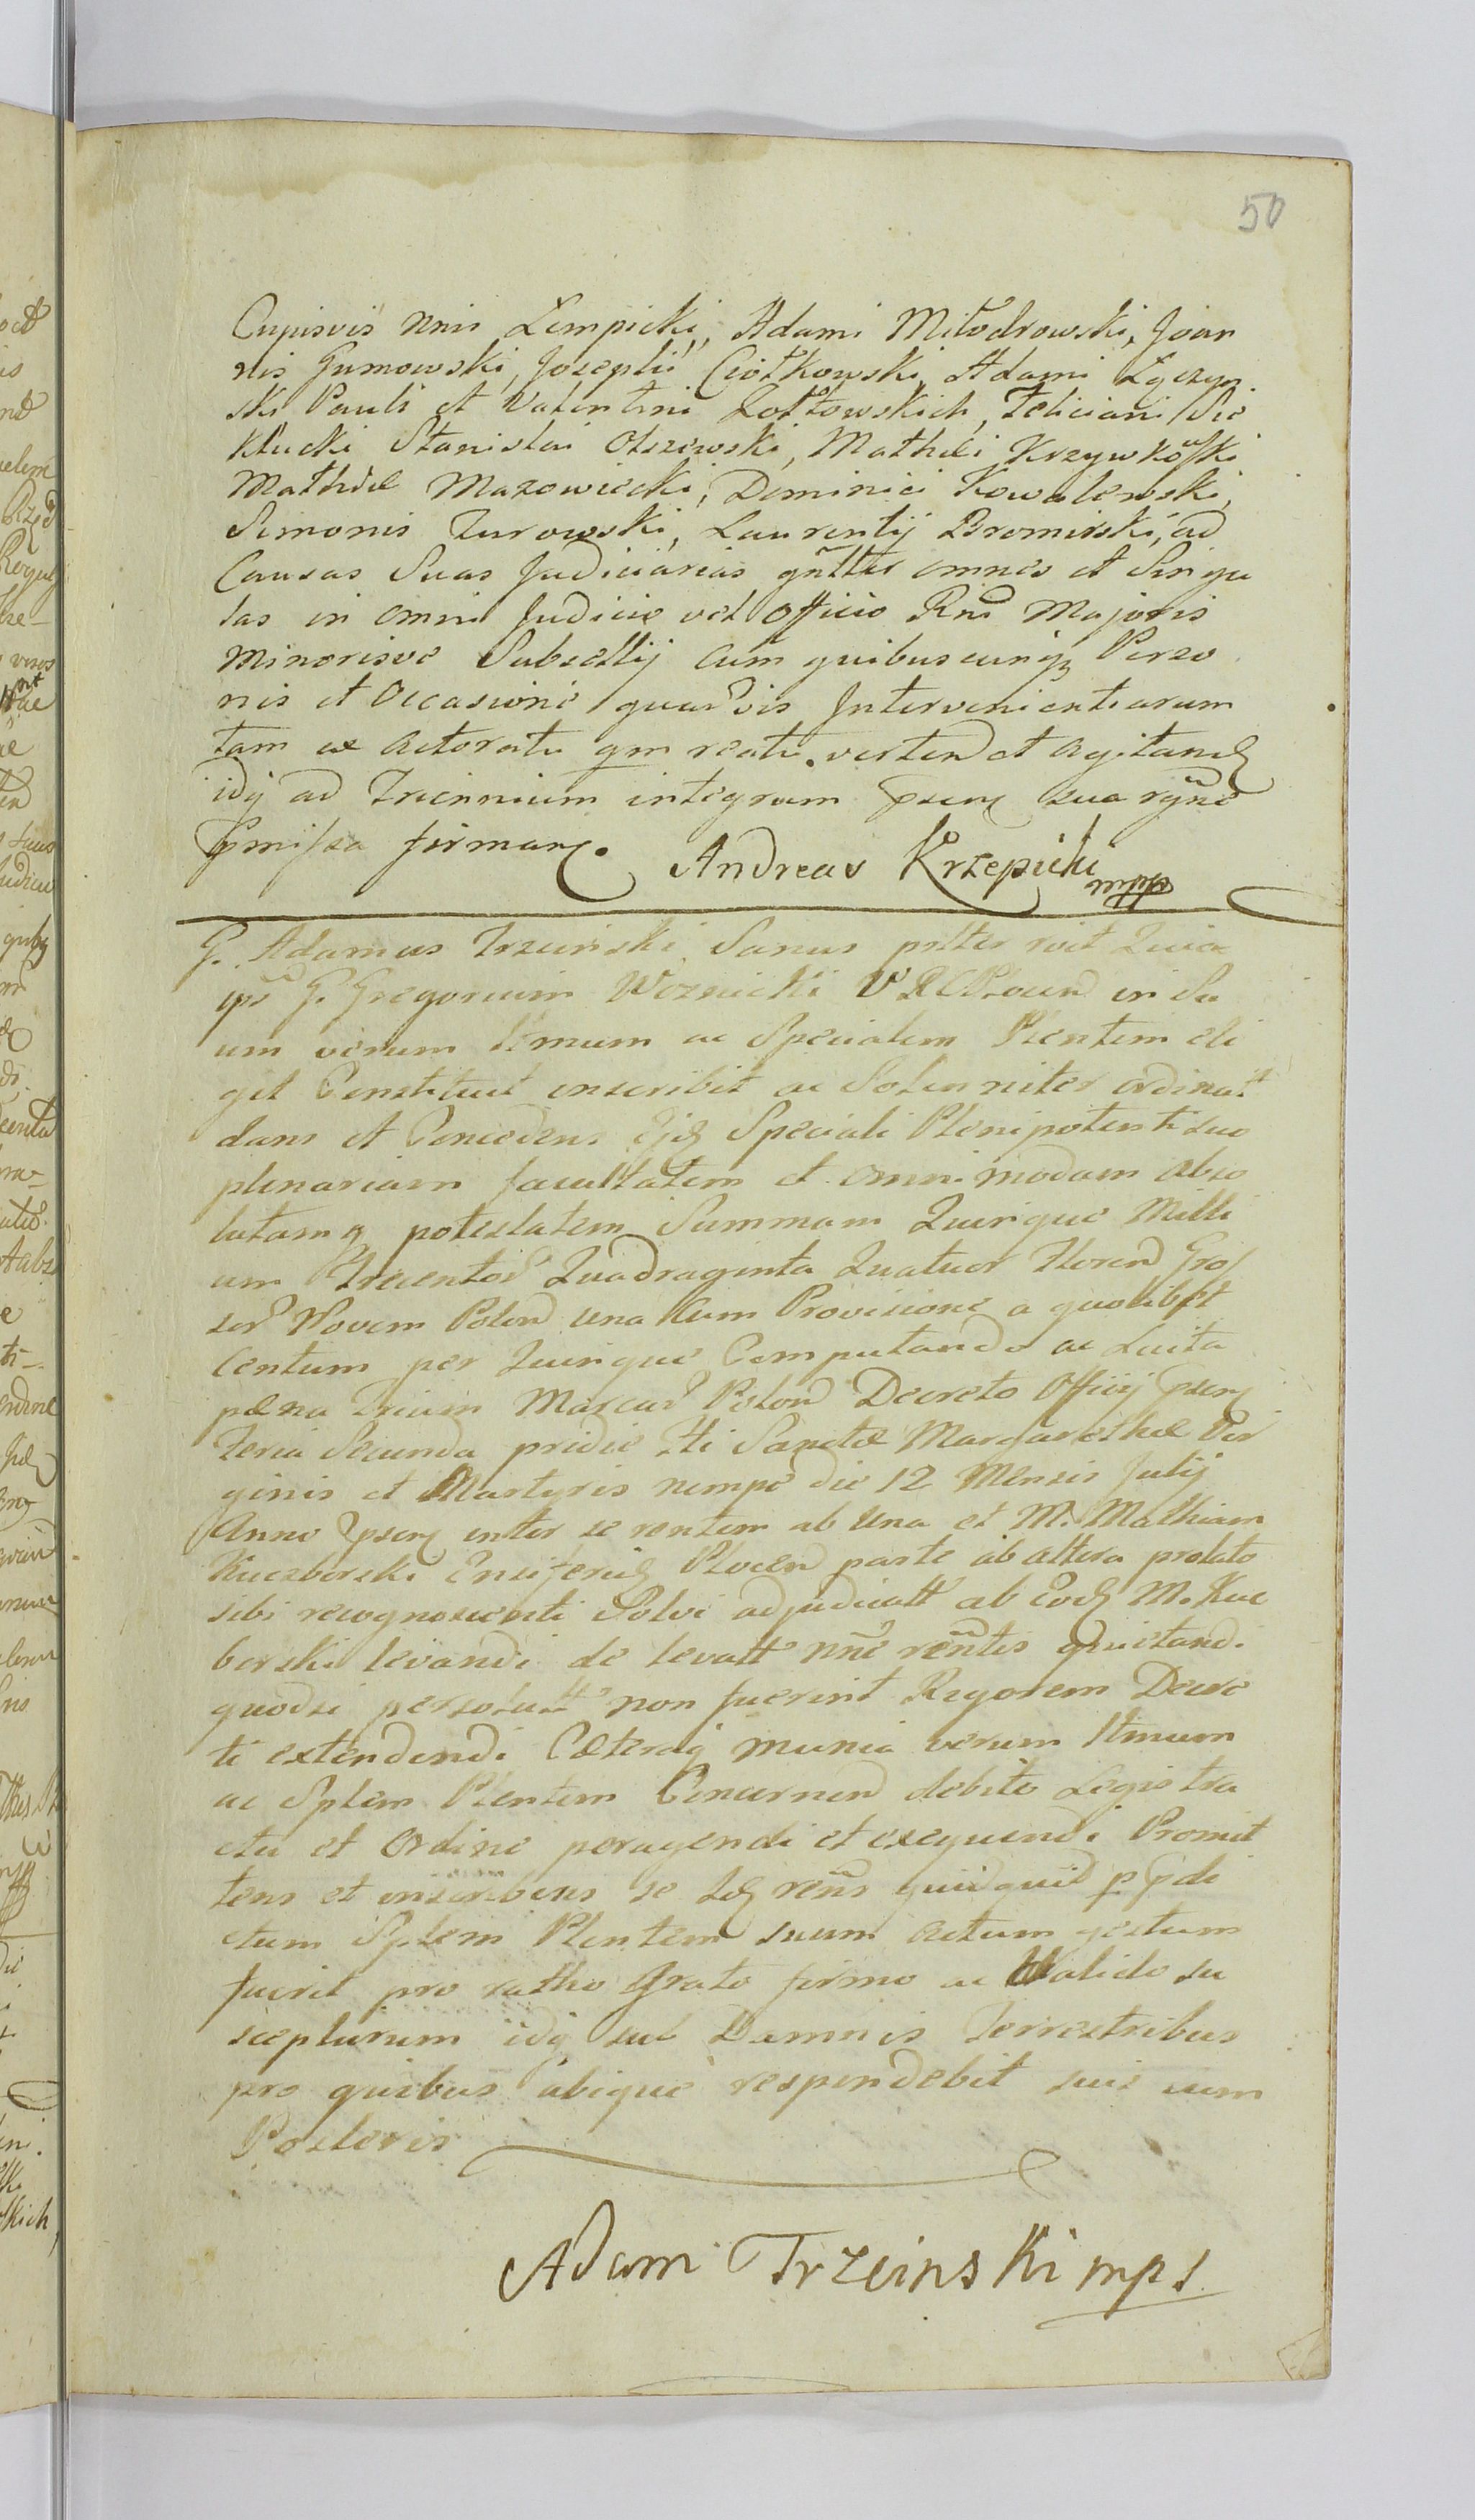 50
Cujusvis nnis Łempicki, Adami Miłodrowski, Joan
nis Gumowski, Josephi Ciołkowski, Adami Łączyn
ski Pauli et Valentini Zółtowskich, Feliciani Sie
klucki Stanislai Olszewski, Mathei Krzywkowski
Mathiæ Mazowiecki, Dominici Kowalewski,
Simonis Zurowski, Laurentij Bromirski, ad
Causas Suas Judiciarias gnltter omnes et Singu
las in omni Judicio vel Officio Rni Majoris
Minorisve Subsellij cum quibuscunq Perso
nis et Occasione quarvis Intervenientiarum
tam ex Actoratu qm reatu vertend et agitand
idq ad Triennium integrum pseng sua rgne
pmissa firmang. Andreas Krzepicki mpp
G. Adamus Trzcinski Sanus pntter roit Quia
ips G. Gregorium Woznicki V R C Plocen in Su
um verum ltmum ac Specialem Plentem eli
git Constituit inscribit ac Solenniter ordinat
dans et Concedens Ejd Speciali Plenipotenti suo
plenariam facultatem et omnimodam abso
lutamq potestatem Summam Quinque Milli
um Trecentor Quadraginta Quatuor Floren Gros
sor Novem Polon una cum Provisione a quolibet
Centum per Quinque Computando ac Luita
pæna Trium Marcar Polon Decreto Officij pseng
Feria Secunda pridie Fti Sanctæ Margarethæ Vir
ginis et Martyris nempe die 12 Mensis Julij
Anno pseng inter se rentem ab una et M. Mathiam
Kuczborski Ensiferid Plocen parte ab altera prolato
sibi recognoscenti Solvi adjudicatt ab eod M. Kuc
borski levandi de levatt nne rentis quietandi
quodsi persolutt non fuerint Rigorem Decre
ti extendendi Cæteraq munia verum ltmum
ac Splem Plentem Concernen debito Legis tra
ctu et Ordine peragendi et exequendi Promit
tens et inscribens se Id rens quidquid p pdi
ctum Splem Plentem suum actum gestum
fuerit pro ratho grato firmo ac Valido su
scepturum idq sub Damnis Terrestribus
pro quibus ubique respondebit suis cum
Posteris
Adam Trzcinski mps